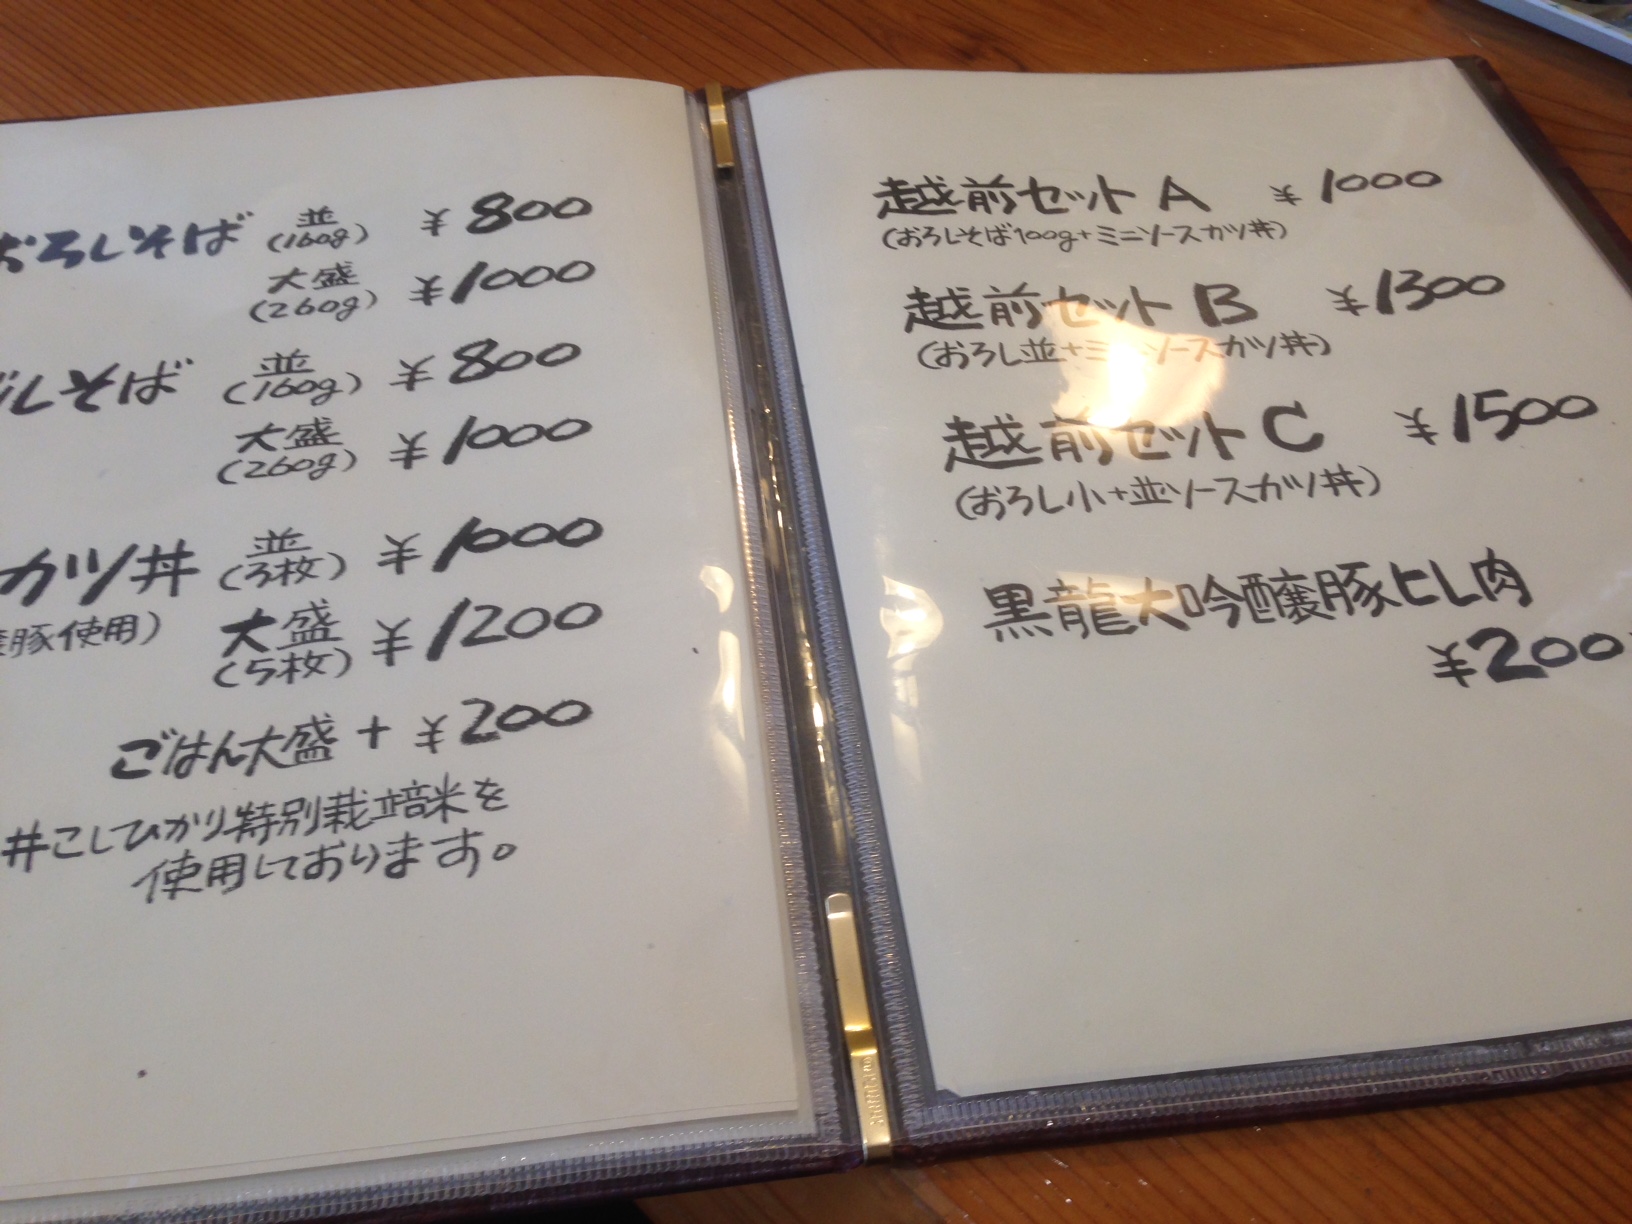 おろしそば 並 ¥800
(160g)
大盛 ¥1000
(260g)
しそば 並 ¥800
(160g)
大盛 ¥1000
(260g)
カツ丼 並 ¥1000
(3枚)
豚使用) 大盛 ¥1200
(5枚)
ごはん大盛 + ¥200
井こしひかり特別栽培米を
使用しております。
越前セット A ¥1000
(おろしそば100g+ミニソースカツ丼)
越前セット B ¥1300
(おろし並+ミニソースカツ丼)
越前セット C ¥1500
(おろし小+並ソースカツ丼)
黒龍大吟醸豚ヒレ肉
¥200